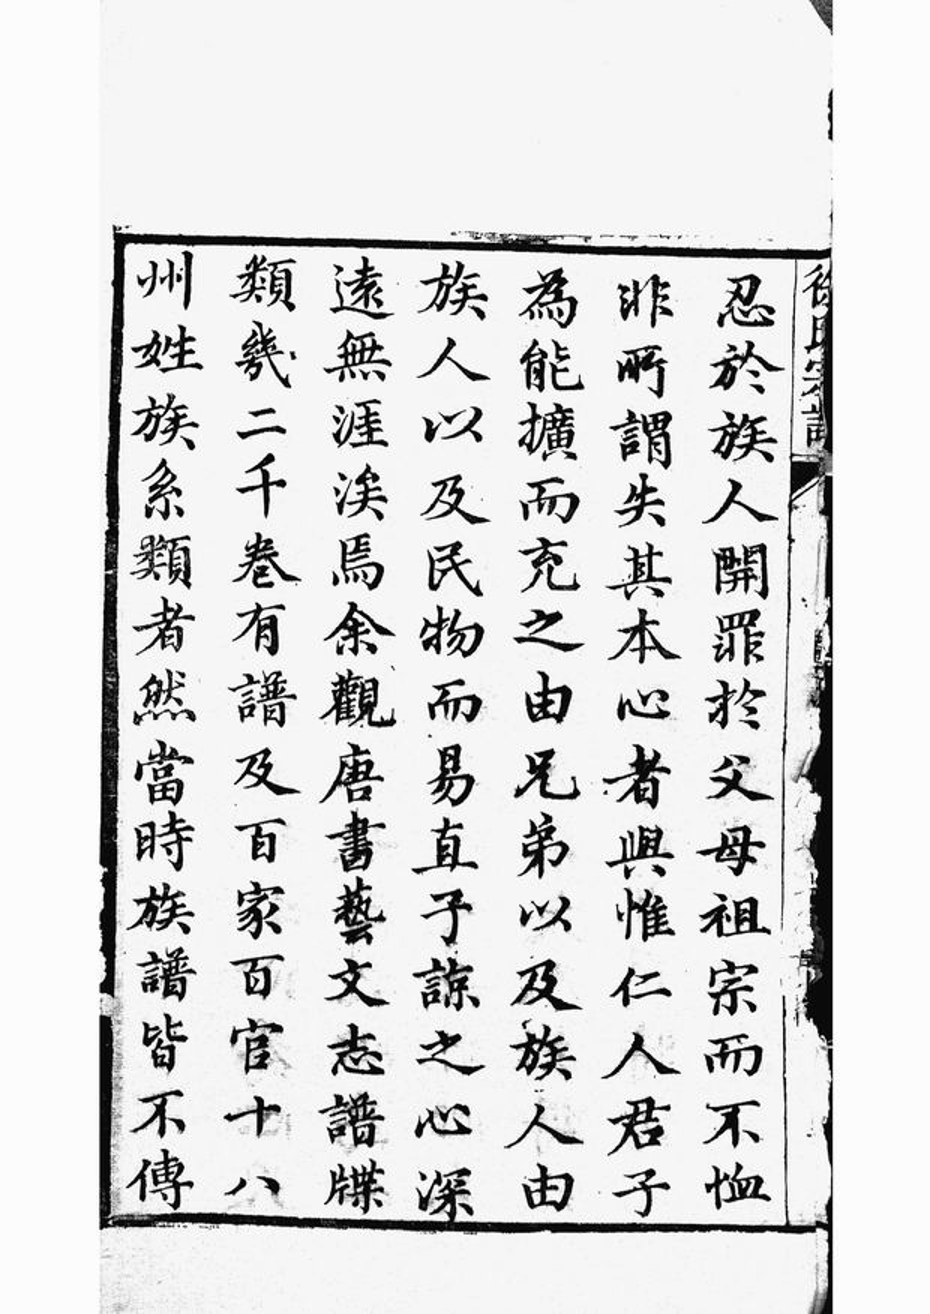 徐氏宗譜
忍於族人開罪於父母祖宗而不恤
非所謂失其本心者與惟仁人君子
為能擴而充之由兄弟以及族人由
族人以及民物而易直子諒之心深
遠無涯涘焉余觀唐書藝文志譜牒
類幾二千卷有譜及百家百官十八
州姓族系類者然當時族譜皆不傳